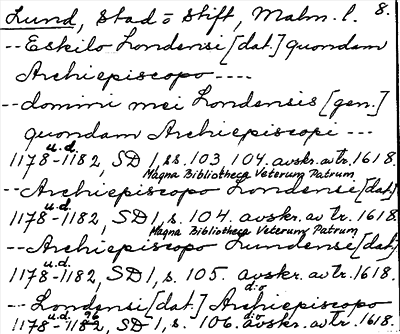 Lund, Stad o Stift, Malm. l. 8.
-- Eskilo Londensi [dat.] quondam
Archiepiscopo ----
-- domini mei Londensis [gen.]
quondam Archiepiscopi ---
u.d.
1178-1182, SD 1, ss. 103, 104. avskr. av tr. 1618.
Magna Bibliotheca Veterum Patrum
-- Archiepiscopo Londensi [dat.]
u.d.
1178-1182, SD 1, s. 104. avskr. av tr. 1618.
Magna Bibliotheca Veterum Patrum
-- Archiepiscopo Lundensi [dat.]
u.d.
1178-1182, SD 1, s. 105. avskr. av tr. 1618.
d:o
-- Londensi [dat.] Archiepiscopo
u.d. d:o
1178-1182, SD 1, s. 106. avskr. av tr. 1618.